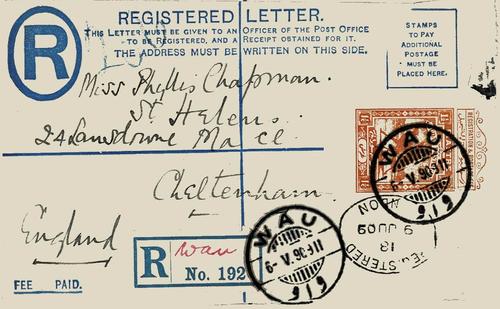 R
REGISTERED LETTER.
THIS LETTER MUST BE GIVEN TO AN OFFICER OF THE POST OFFICE
TO BE REGISTERED, AND A RECEIPT OBTAINED FOR IT.
THE ADDRESS MUST BE WRITTEN ON THIS SIDE.
STAMPS
TO PAY
ADDITIONAL
POSTAGE
MUST BE
PLACED HERE.
Miss Phyllis Chapman.
St Helens
24 Lansdowne Place
Cheltenham.
England
FEE PAID.
R
Wau
No. 192
WAU
WAU
9 JU 09